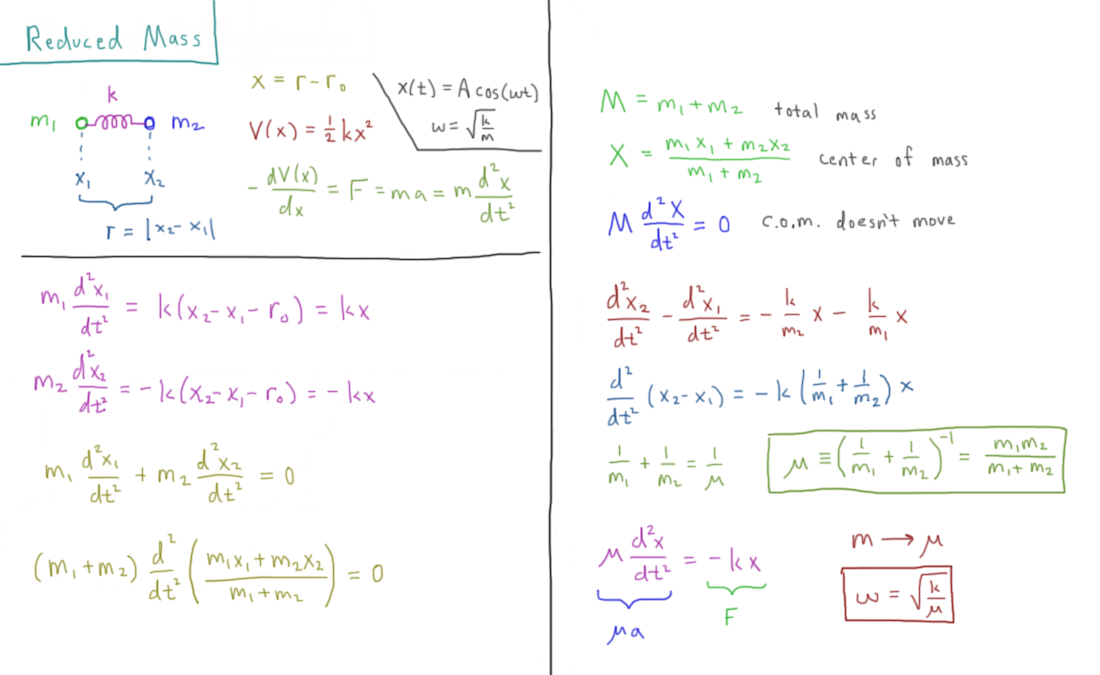 Reduced Mass
k
m₁ m₂
x₁ x₂
r = |x₂ - x₁|
x = r - r₀
V(x) = ½ kx²
- dV(x)/dx = F = ma = m d²x/dt²
x(t) = A cos(ωt)
ω = √(k/m)
m₁ d²x₁/dt² = k(x₂ - x₁ - r₀) = kx
m₂ d²x₂/dt² = -k(x₂ - x₁ - r₀) = -kx
m₁ d²x₁/dt² + m₂ d²x₂/dt² = 0
(m₁ + m₂) d²/dt² ((m₁x₁ + m₂x₂)/(m₁ + m₂)) = 0
M = m₁ + m₂ total mass
X = (m₁x₁ + m₂x₂)/(m₁ + m₂) center of mass
M d²X/dt² = 0 c.o.m. doesn't move
d²x₂/dt² - d²x₁/dt² = - k/m₂ x - k/m₁ x
d²/dt² (x₂ - x₁) = -k (1/m₁ + 1/m₂) x
1/m₁ + 1/m₂ = 1/μ
μ ≡ (1/m₁ + 1/m₂)⁻¹ = m₁m₂/(m₁ + m₂)
μ d²x/dt² = -kx
μa F
m → μ
ω = √(k/μ)